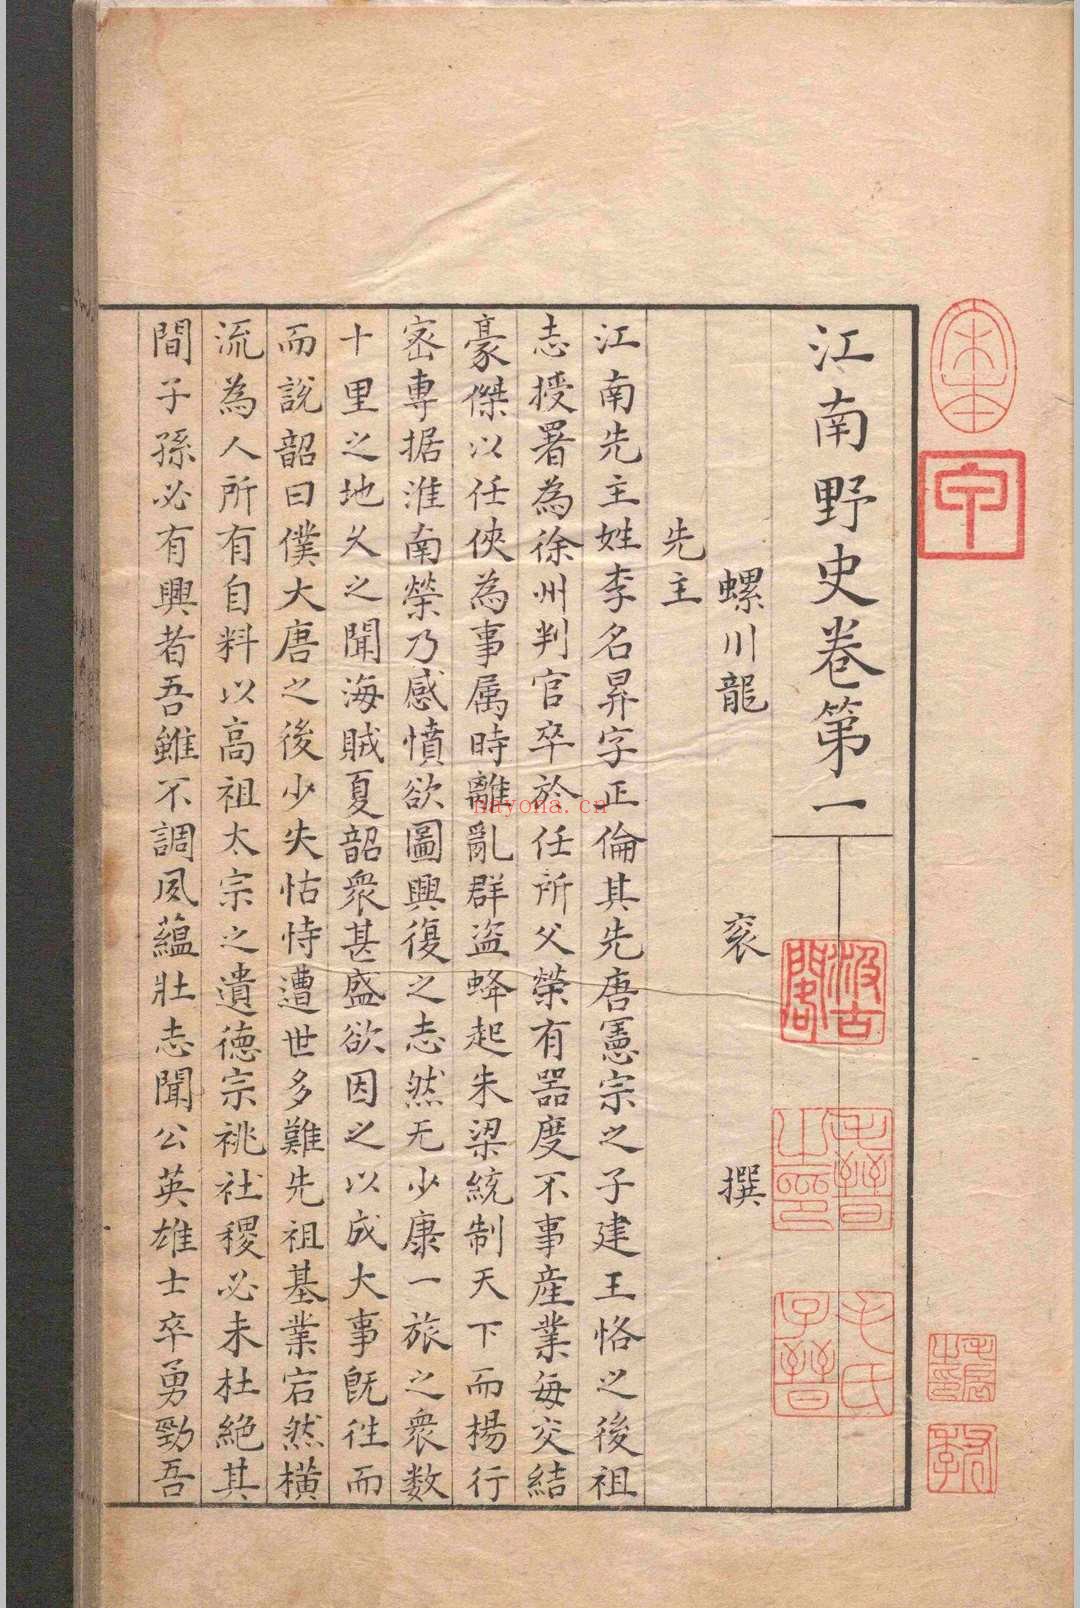 江南野史卷第一
螺川龍 衮 撰
先主
江南先主姓李名昇字正倫其先唐憲宗之子建王恪之後祖
志授署為徐州判官卒於任所父榮有器度不事產業每交結
豪傑以任俠為事属時離亂群盜蜂起朱梁統制天下而楊行
密專据淮南榮乃感憤欲圖興復之志然无少康一旅之衆数
十里之地乆之聞海賊夏韶衆甚盛欲因之以成大事旣往而
而說韶曰僕大唐之後少失怙恃遭世多難先祖基業宕然橫
流為人所有自料以高祖太宗之遺德宗祧社稷必未杜絕其
間子孫必有興者吾雖不調夙蘊壯志聞公英雄士卒勇勁吾
本
甲
汲古閣
毛晉之印
毛氏子晉
nayona.cn